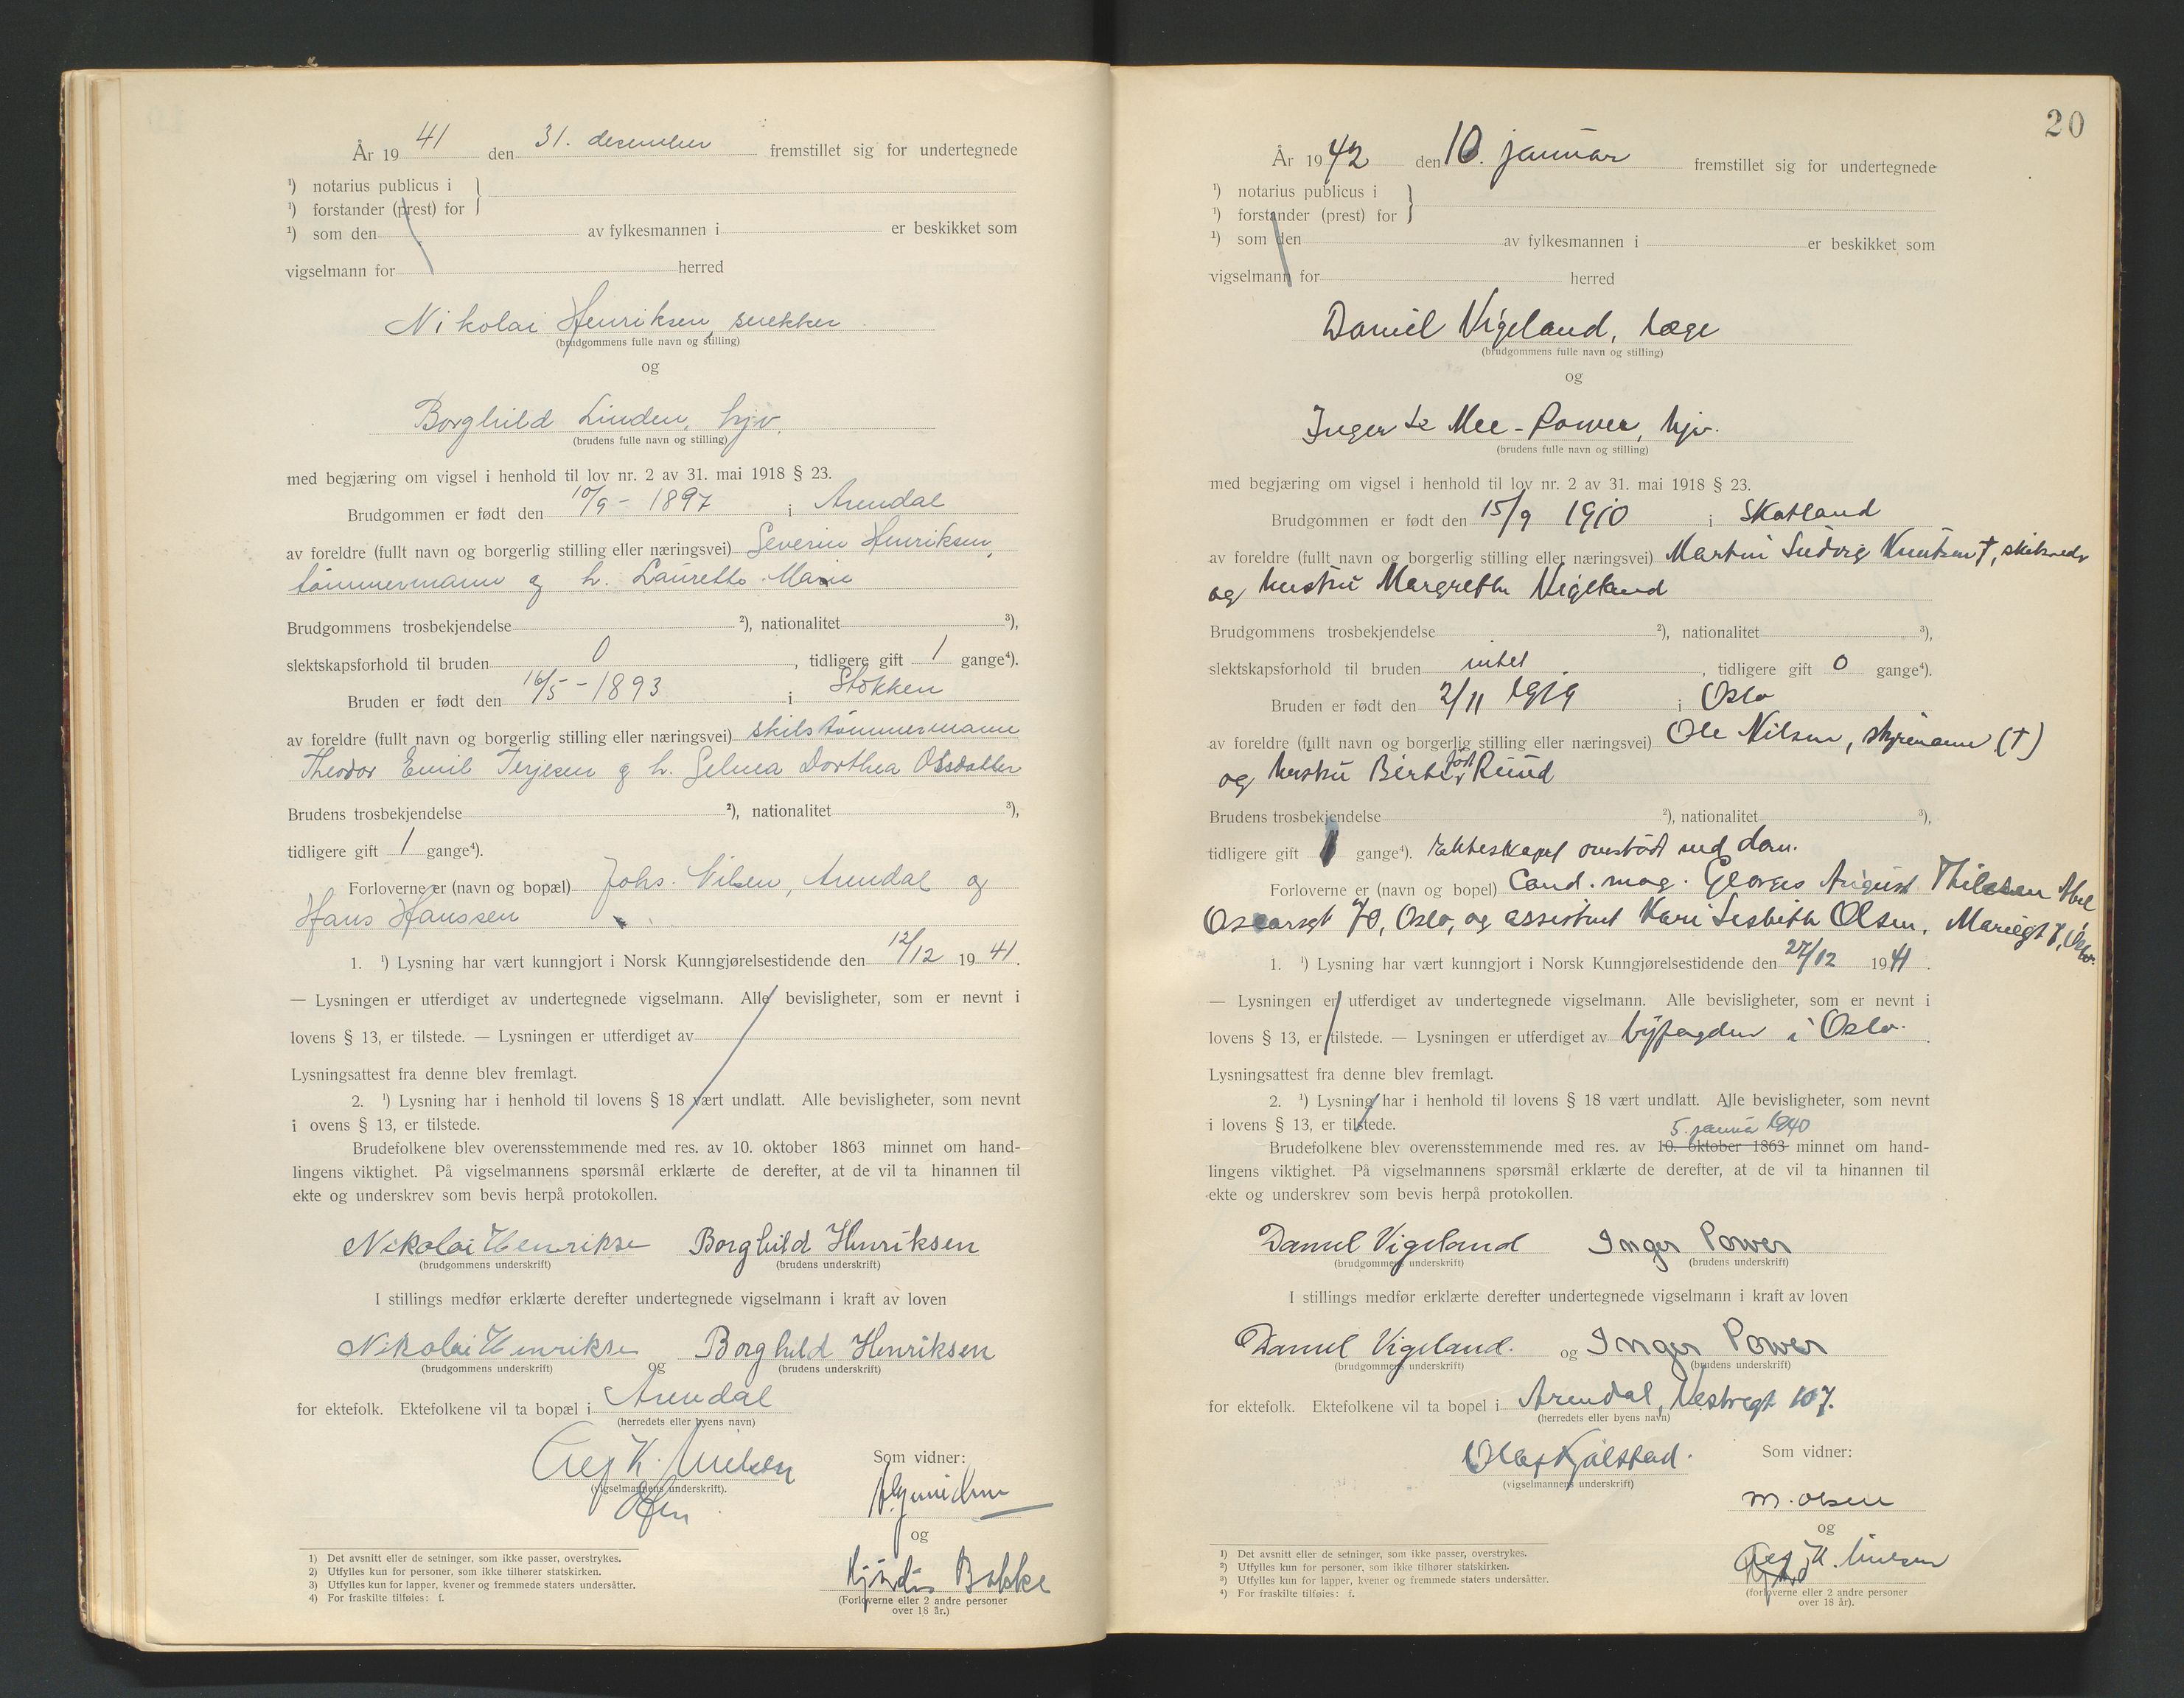 År 1941 den 31. desember fremstillet sig for undertegnede
¹) notarius publicus i }
¹) forstander (prest) for
¹) som den av fylkesmannen i er beskikket som
vigselmann for herred
Nikolai Henriksen, snekker
(brudgommens fulle navn og stilling)
og
Borghild Linden, hjv.
(brudens fulle navn og stilling)
med begjæring om vigsel i henhold til lov nr. 2 av 31. mai 1918 § 23.
Brudgommen er født den 10/9 - 1897 i Arendal
av foreldre (fullt navn og borgerlig stilling eller næringsvei) Severin Henriksen,
tømmermann og h. Laurette Marie
Brudgommens trosbekjendelse ²), nationalitet ³),
slektskapsforhold til bruden 0, tidligere gift 1 gange⁴).
Bruden er født den 16/5 - 1893 i Stokken
av foreldre (fullt navn og borgerlig stilling eller næringsvei) skibstømmermann
Theodor Emil Terjesen og h. Selma Dorthea Olsdatter
Brudens trosbekjendelse ²), nationalitet ³),
tidligere gift 1 gange⁴).
Forloverne er (navn og bopæl) Johs. Nilsen, Arendal og
Hans Hanssen
1. ¹) Lysning har vært kunngjort i Norsk Kunngjørelsestidende den 12/12 1941.
— Lysningen er utferdiget av undertegnede vigselmann. Alle bevisligheter, som er nevnt i
lovens § 13, er tilstede. — Lysningen er utferdiget av
Lysningsattest fra denne blev fremlagt.
2. ¹) Lysning har i henhold til lovens § 18 vært undlatt. Alle bevisligheter, som nevnt
i ovens § 13, er tilstede.
Brudefolkene blev overensstemmende med res. av 10. oktober 1863 minnet om hand-
lingens viktighet. På vigselmannens spørsmål erklærte de derefter, at de vil ta hinannen til
ekte og underskrev som bevis herpå protokollen.
Nikolai Henrikse Borghild Henriksen
(brudgommens underskrift) (brudens underskrift)
I stillings medfør erklærte derefter undertegnede vigselmann i kraft av loven
Nikolai Henrikse og Borghild Henriksen
(brudgommens underskrift) (brudens underskrift)
for ektefolk. Ektefolkene vil ta bopæl i Arendal
(herredets eller byens navn)
K. Nielsen Som vidner:
(vigselmannens underskrift).
og
Hjørdis Bakke
(Forloverne eller 2 andre personer
over 18 år.)
1) Det avsnitt eller de setninger, som ikke passer, overstrykes.
2) Utfylles kun for personer, som ikke tilhører statskirken.
3) Utfylles kun for lapper, kvener og fremmede staters undersåtter.
4) For fraskilte tilføies: f.
20
År 1942 den 10. januar fremstillet sig for undertegnede
¹) notarius publicus i }
¹) forstander (prest) for
¹) som den av fylkesmannen i er beskikket som
vigselmann for herred
Daniel Vigeland, læge
(brudgommens fulle navn og stilling)
og
Inger Le Mee-Power, hjv.
(brudens fulle navn og stilling)
med begjæring om vigsel i henhold til lov nr. 2 av 31. mai 1918 § 23.
Brudgommen er født den 15/9 1910 i Skotland
av foreldre (fullt navn og borgerlig stilling eller næringsvei) Martin Ludvig Knutsen †, skibsreder
og hustru Margrethe Vigeland
Brudgommens trosbekjendelse ²), nationalitet ³),
slektskapsforhold til bruden intet, tidligere gift 0 gange⁴).
Bruden er født den 2/11 1919 i Oslo
av foreldre (fullt navn og borgerlig stilling eller næringsvei) Ole Nilsen, styrmann (†)
og hustru Berte født Ruud
Brudens trosbekjendelse ²), nationalitet ³),
tidligere gift 1 gange⁴). Ekteskapet omstødt ved dom.
Forloverne er (navn og bopel) Cand. mag. Georges August Thilesen Abel
Oscarsgt 70, Oslo, og assistent Kari Lisbeth Olsen, Mariegt 7, Oslo.
1. ¹) Lysning har vært kunngjort i Norsk Kunngjørelsestidende den 27/12 1941.
— Lysningen er utferdiget av undertegnede vigselmann. Alle bevisligheter, som er nevnt i
lovens § 13, er tilstede. — Lysningen er utferdiget av byfogden i Oslo.
Lysningsattest fra denne blev fremlagt.
2. ¹) Lysning har i henhold til lovens § 18 vært undlatt. Alle bevisligheter, som nevnt
i lovens § 13, er tilstede.
5. januar 1940
Brudefolkene blev overensstemmende med res. av 10. oktober 1863 minnet om hand-
lingens viktighet. På vigselmannens spørsmål erklærte de derefter, at de vil ta hinannen til
ekte og underskrev som bevis herpå protokollen.
Daniel Vigeland Inger Power
(brudgommens underskrift) (brudens underskrift)
I stillings medfør erklærte derefter undertegnede vigselmann i kraft av loven
Daniel Vigeland. og Inger Power
(brudgommens underskrift) (brudens underskrift)
for ektefolk. Ektefolkene vil ta bopel i Arendal, Vestregt 107.
(herredets eller byens navn)
Olaf Kjølstad. Som vidner:
(vigselmannens underskrift)
M. Olsen
og
K. Nielsen
(forloverne eller 2 andre personer
over 18 år).
¹) Det avsnitt eller de setninger, som ikke passer, overstrykes.
²) Utfylles kun for personer, som ikke tilhører statskirken.
³) Utfylles kun for lapper, kvener og fremmede staters undersåtter.
⁴) For fraskilte tilføies: f.